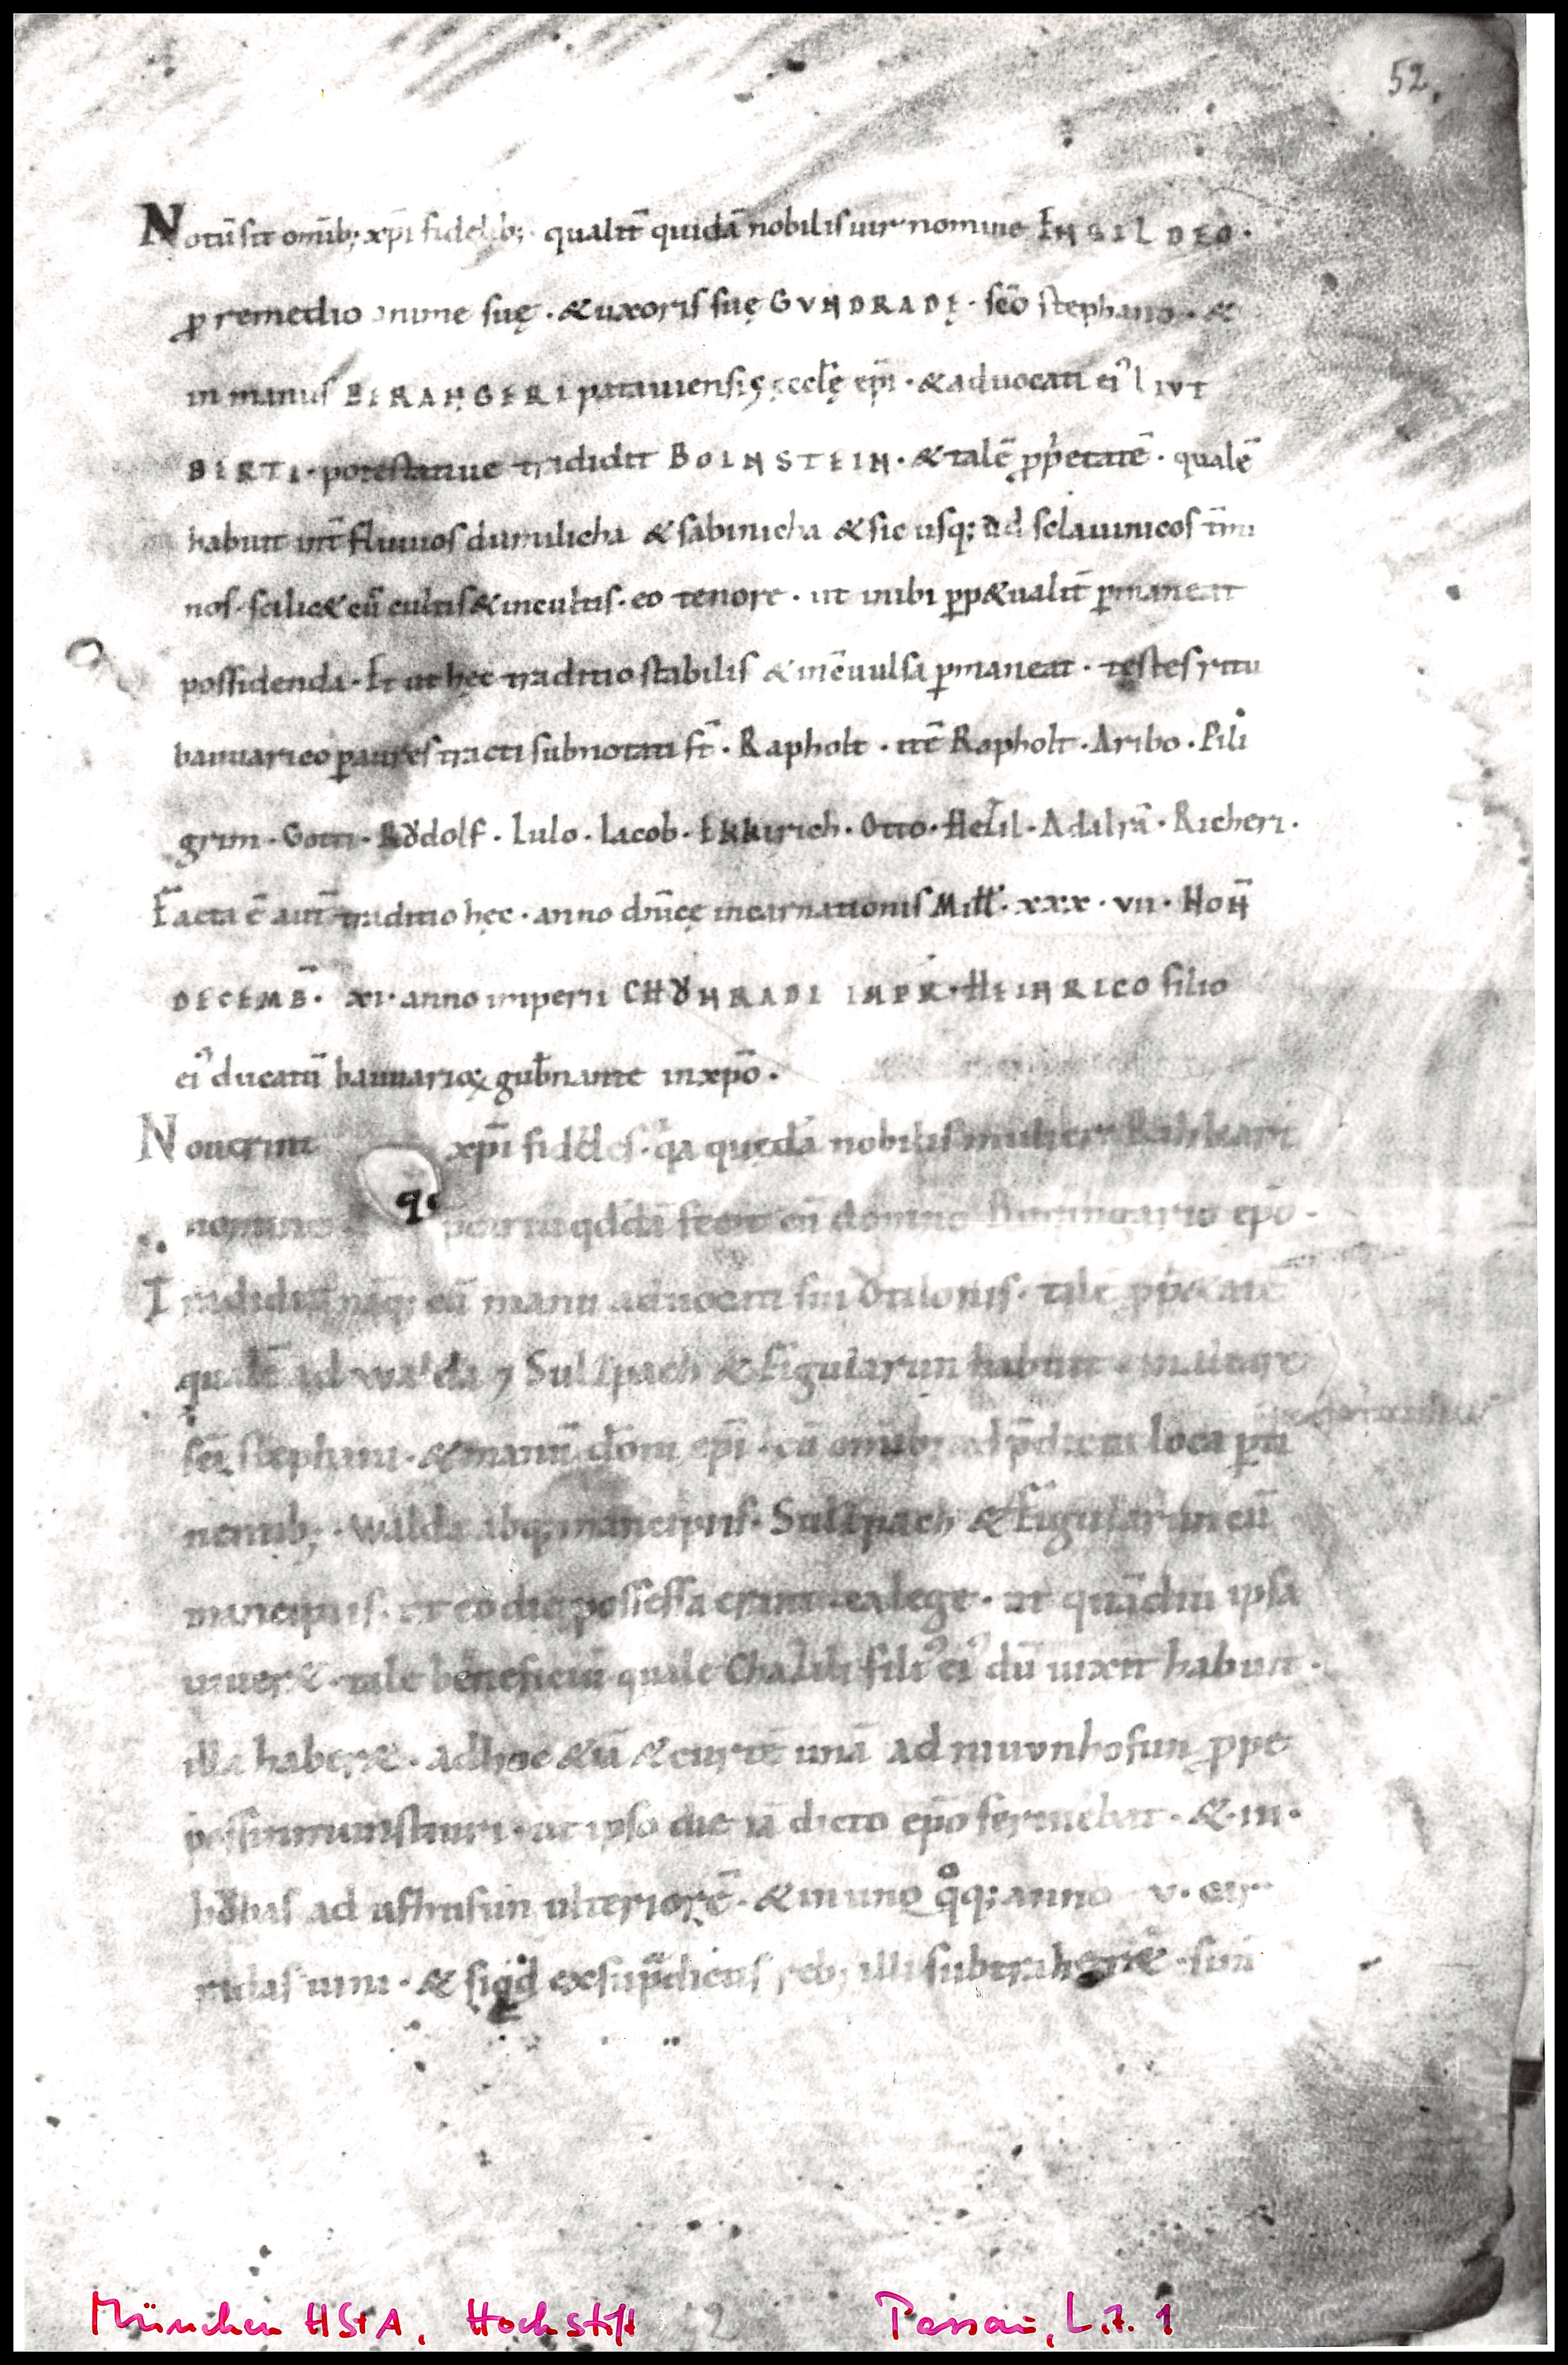 52,
Notū sit omīb; xp̄i fidelib; · qualit̄ quidā nobilis uir nomine ENGILDEO ·
ꝓ remedio anime suę · & uxoris suę GVNDRADĘ · sc̄o stephano · &
in manus BERANGERI patauiensis ęcclę ep̄i · & aduocati ei᾽ LIVT
BERTI · potestatiue tradidit BOINSTEIN · & talē ꝓp̍etatē · qualē
habuit int̄ fluuios durnlicha & sabinicha & sic usq; ad sclauinicos t̄mi
nos · scilic& cū cultis & incultis · eo tenore · ut inibi ꝑp&ualit̄ ꝑmaneat
possidenda · Et ut hęc traditio stabilis & incōuulsa ꝑmaneat · testes ritu
bauuarico ꝑ aures tracti subnotati st̄ · Rapholt · itē Rapholt · Aribo · Pili
grim · Gotti · Rͦudolf · Lulo · Iacob · EKKirich · Otto · Hecil · Adalrā · Richeri ·
Facta ē aut̄ traditio hęc · anno dn̄icę incarnationis Mill̄ · xxx · vii · NON̄
DECEMB̄ · xi · anno imperii CHͦVNRADI IMPR · HEINRICO filio
ei᾽ ducatū bauuarioꝝ gub̄nante in xp̄o ·
Nouerint xp̄i fideles · qa quędā nobilis mulier
nomine qddā fecit cū domino ep̄o ·
Tradidit naq; cū manu aduocati sui ͦvtilonis · talē ꝓp̍&atē
qualē ad walda ⁊ Sulzpach & habuit
sc̄i stephani · & manū dom̄ ep̄i · cū omīb; ad p̄dicta loca ꝑti
nentib; · walda absq; mancipiis · Sulzpach & cū
mancipiis · et eo die possessa erant ea lege · ut quādiu ipsa
uiuer& · tale beneficiū quale Chazili fili᾽ ei᾽ dū uixit habuit ·
illa haber& · Adhoc &iā & curtē unā ad niuvnhofun ꝓpe
ut ipso die iā dicto ep̄o seruiebat · & · iii ·
hͦvbas ad ulteriorē · & in uno qͦq; anno · v · car
radas uini · & siqd ex sup̄dictis reb; illi subtraher& · siui
q·
München HStA, Hochstift Passau, Lit. 1